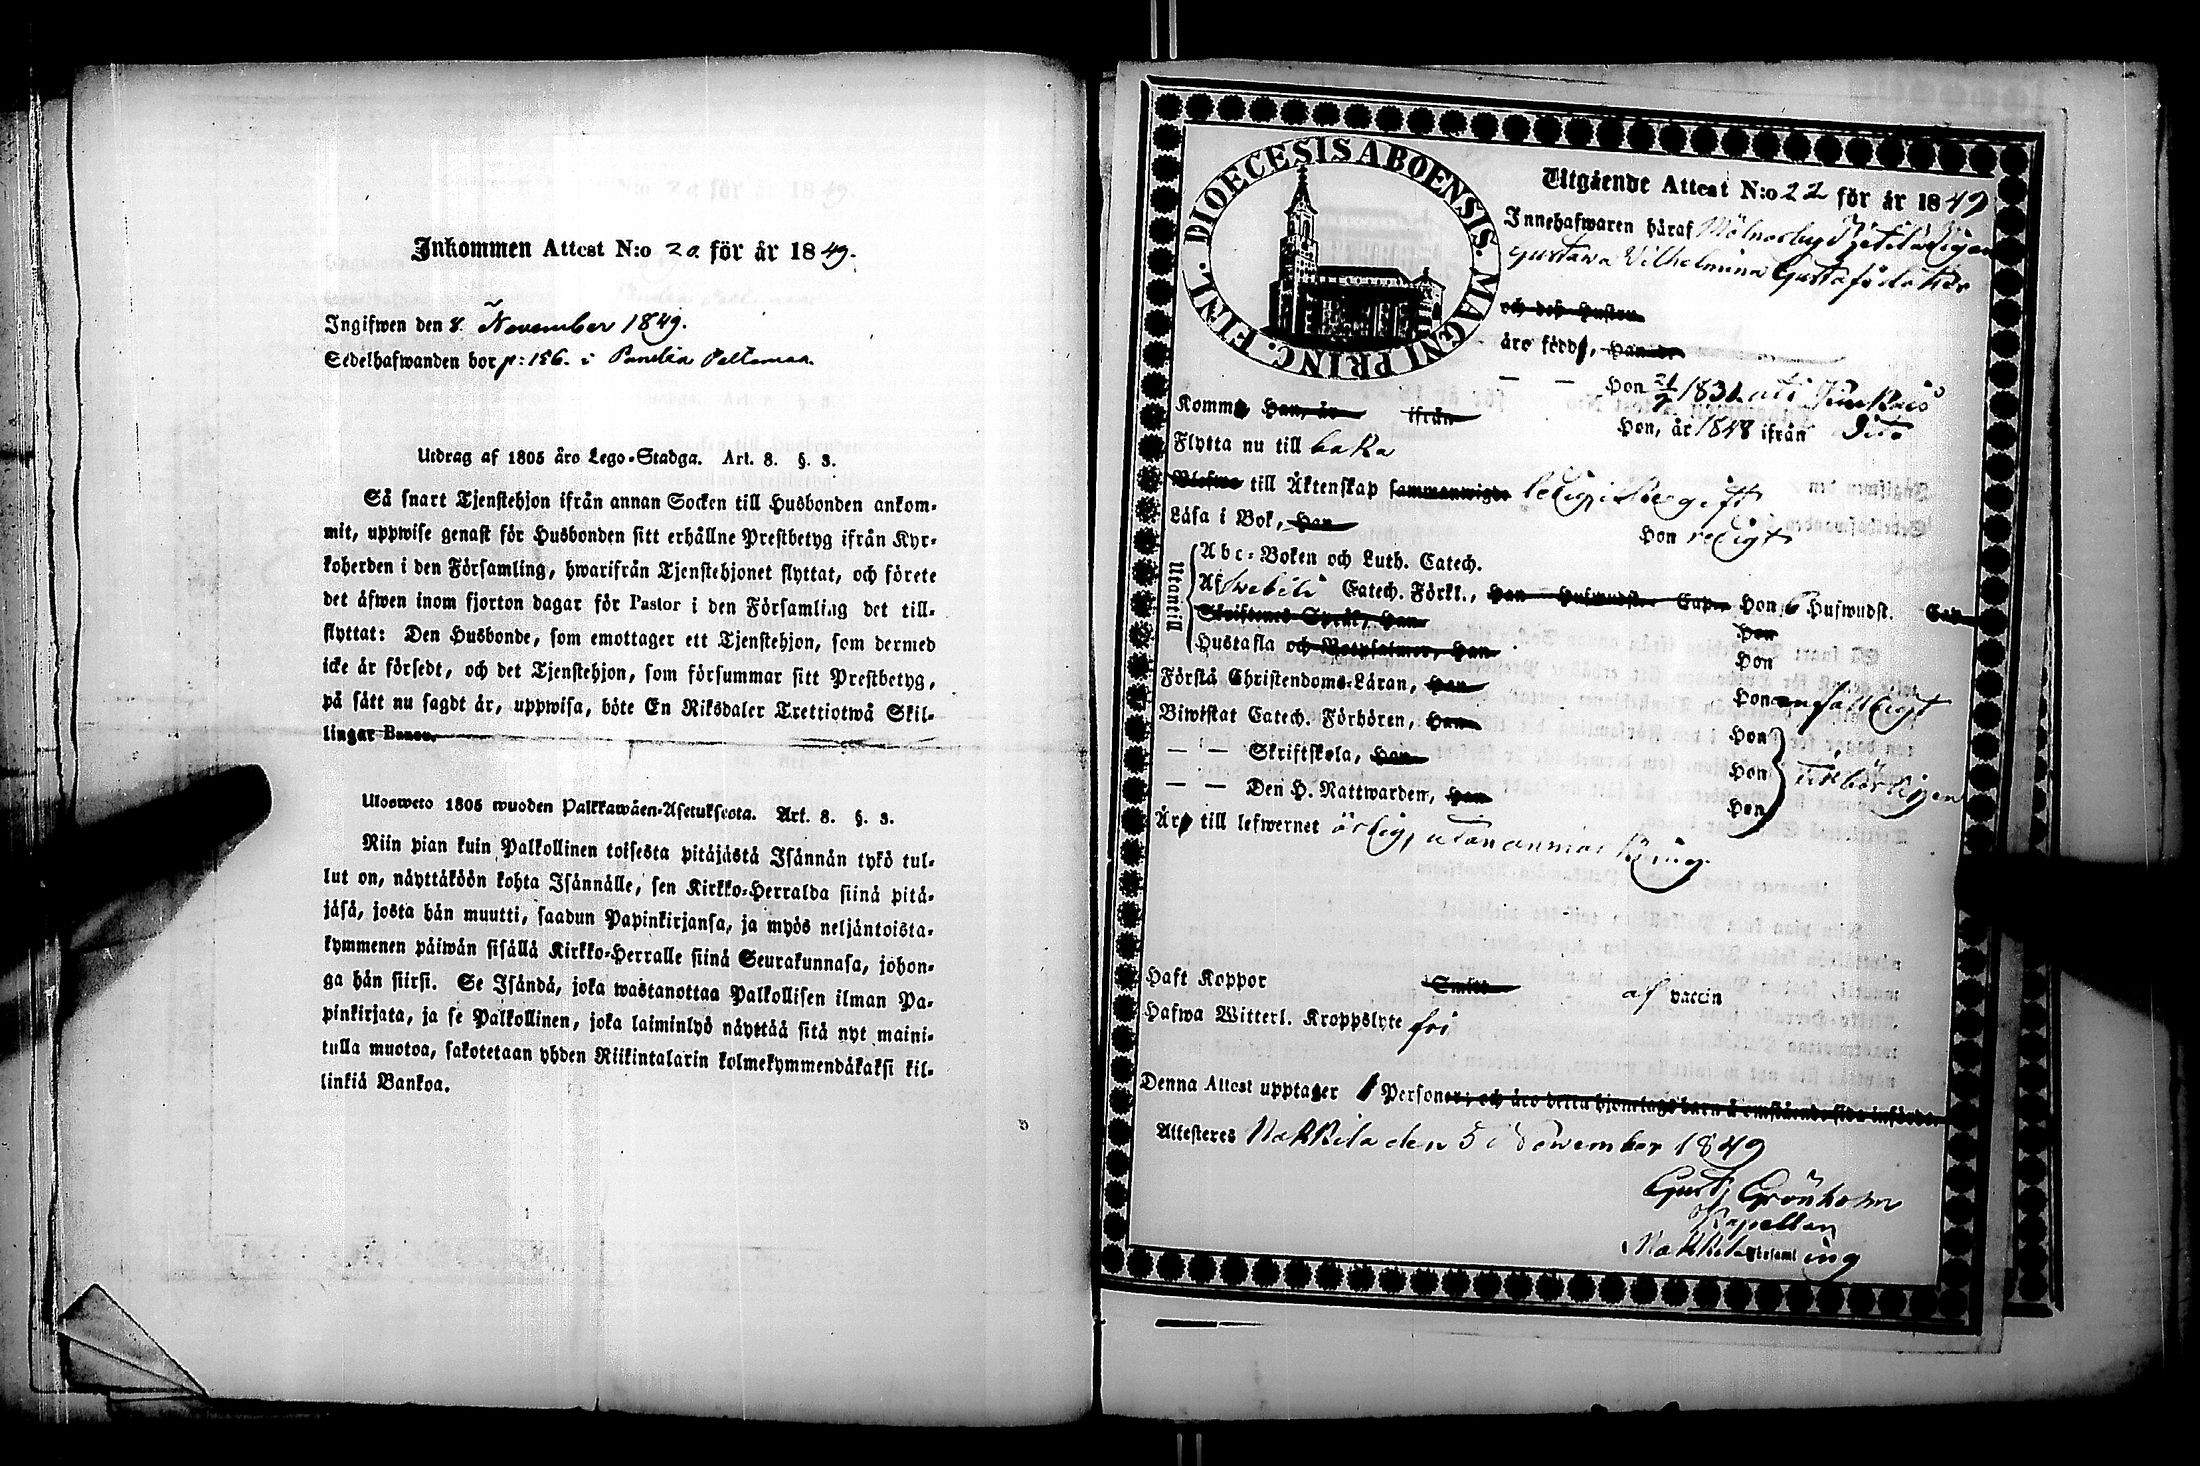 Inkommen Attest N:o 20 för år 1849.
Ingifwen den 8 November 1849.
Sedelhafwanden bor p: 156. i Panelia Peltomaa
Utdrag af 1805 års Lego-Stadga. Art. 8. §. 3.
Så snart Tjenstehjon ifrån annan Socken till Husbonden ankom-
mit, uppwise genast för Husbonden sitt erhållne Prestbetyg ifrån Kyr-
koherden i den Församling, hwarifrån Tjenstehjonet flyttat, och förete
det äfwen inom fjorton dagar för Pastor i den Församling det till-
flyttat: Den Husbonde, som emottager ett Tjenstehjon, som dermed
icke är försedt, och det Tjenstehjon, som försummar sitt Prestbetyg,
på sätt nu sagdt är, uppwisa, böte En Riksdaler Trettiotwå Skil-
lingar Banco.
Ulosweto 1805 wuoden Palkkawäen-Asetuksesta. Art. 8. §. 3.
Niin pian kuin Palkollinen toisesta pitäjästä Isännän tykö tul-
lut on, näyttäköön kohta Isännälle, sen Kirkko-Herralda siinä pitä-
jäsä, josta hän muutti, saadun Papinkirjansa, ja myös neljäntoista-
kymmenen päiwän sisällä Kirkko-Herralle siinä Seurakunnasa, johon-
ga hän siirsi. Se Isändä, joka wastanottaa Palkollisen ilman Pa-
pinkirjata, ja se Palkollinen, joka laiminlyö näyttää sitä nyt maini-
tulla muotoa, sakotetaan yhden Riikintalarin kolmekymmendäkaksi kil-
linkiä Bankoa.
DIOECESIS ABOENSIS. MAGNI PRINC. FINL.
Utgående Attest N:o 22 för år 1849
Innehafwaren häraf
Gustawa Wilhelmina Gustafsdotter
och dess Hustru
äro född, Han
— — Hon 21/9 1831 uti
Komm Han, år ifrån
Hon, år 1848 ifrån Dito
Flytta nu till baka
Blefwo till Äktenskap sammanwigde ledig
Läsa i Bok, Han
Hon redigt
Utantill
Abc-Boken och Luth. Catech.
Af Swebili Catech. Förkl., Han Hufwudst. Cap. Hon 6 Hufwudst. Cap
Skriftenes Språk, Han Hon
Hustafla och Botpsalmer, Han Hon
Förstå Christendoms-Läran, Han Hon enfalldigt
Biwistat Catech. Förhören, Han Hon
— — Skriftskola, Han Hon
— — Den H. Nattwarden, Han Hon
Är till lefwernet ärlig, utan anmärkning.
Haft Koppor Smitt af vaccin
Hafwa Witterl. Kroppslyte fri
Denna Attest upptager 1 Personer; och äro detta hjonelags barn å omstående sida införde.
Attesteres Nakkila den 5 November 1849
Gust. Grönholm
Kapellan
Nakkila församling